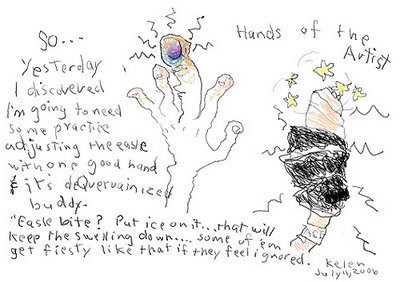 So...
Yesterday
I discovered
I'm going to need
some practice
adjusting the easle
with one good hand
& it's deQuervainized
buddy.
"Easle bite? Put ice on it...that will
keep the swelling down.... some of 'em
get fiesty like that if they feel ignored.
Hands of the
Artist
Kelen
July 11, 2006